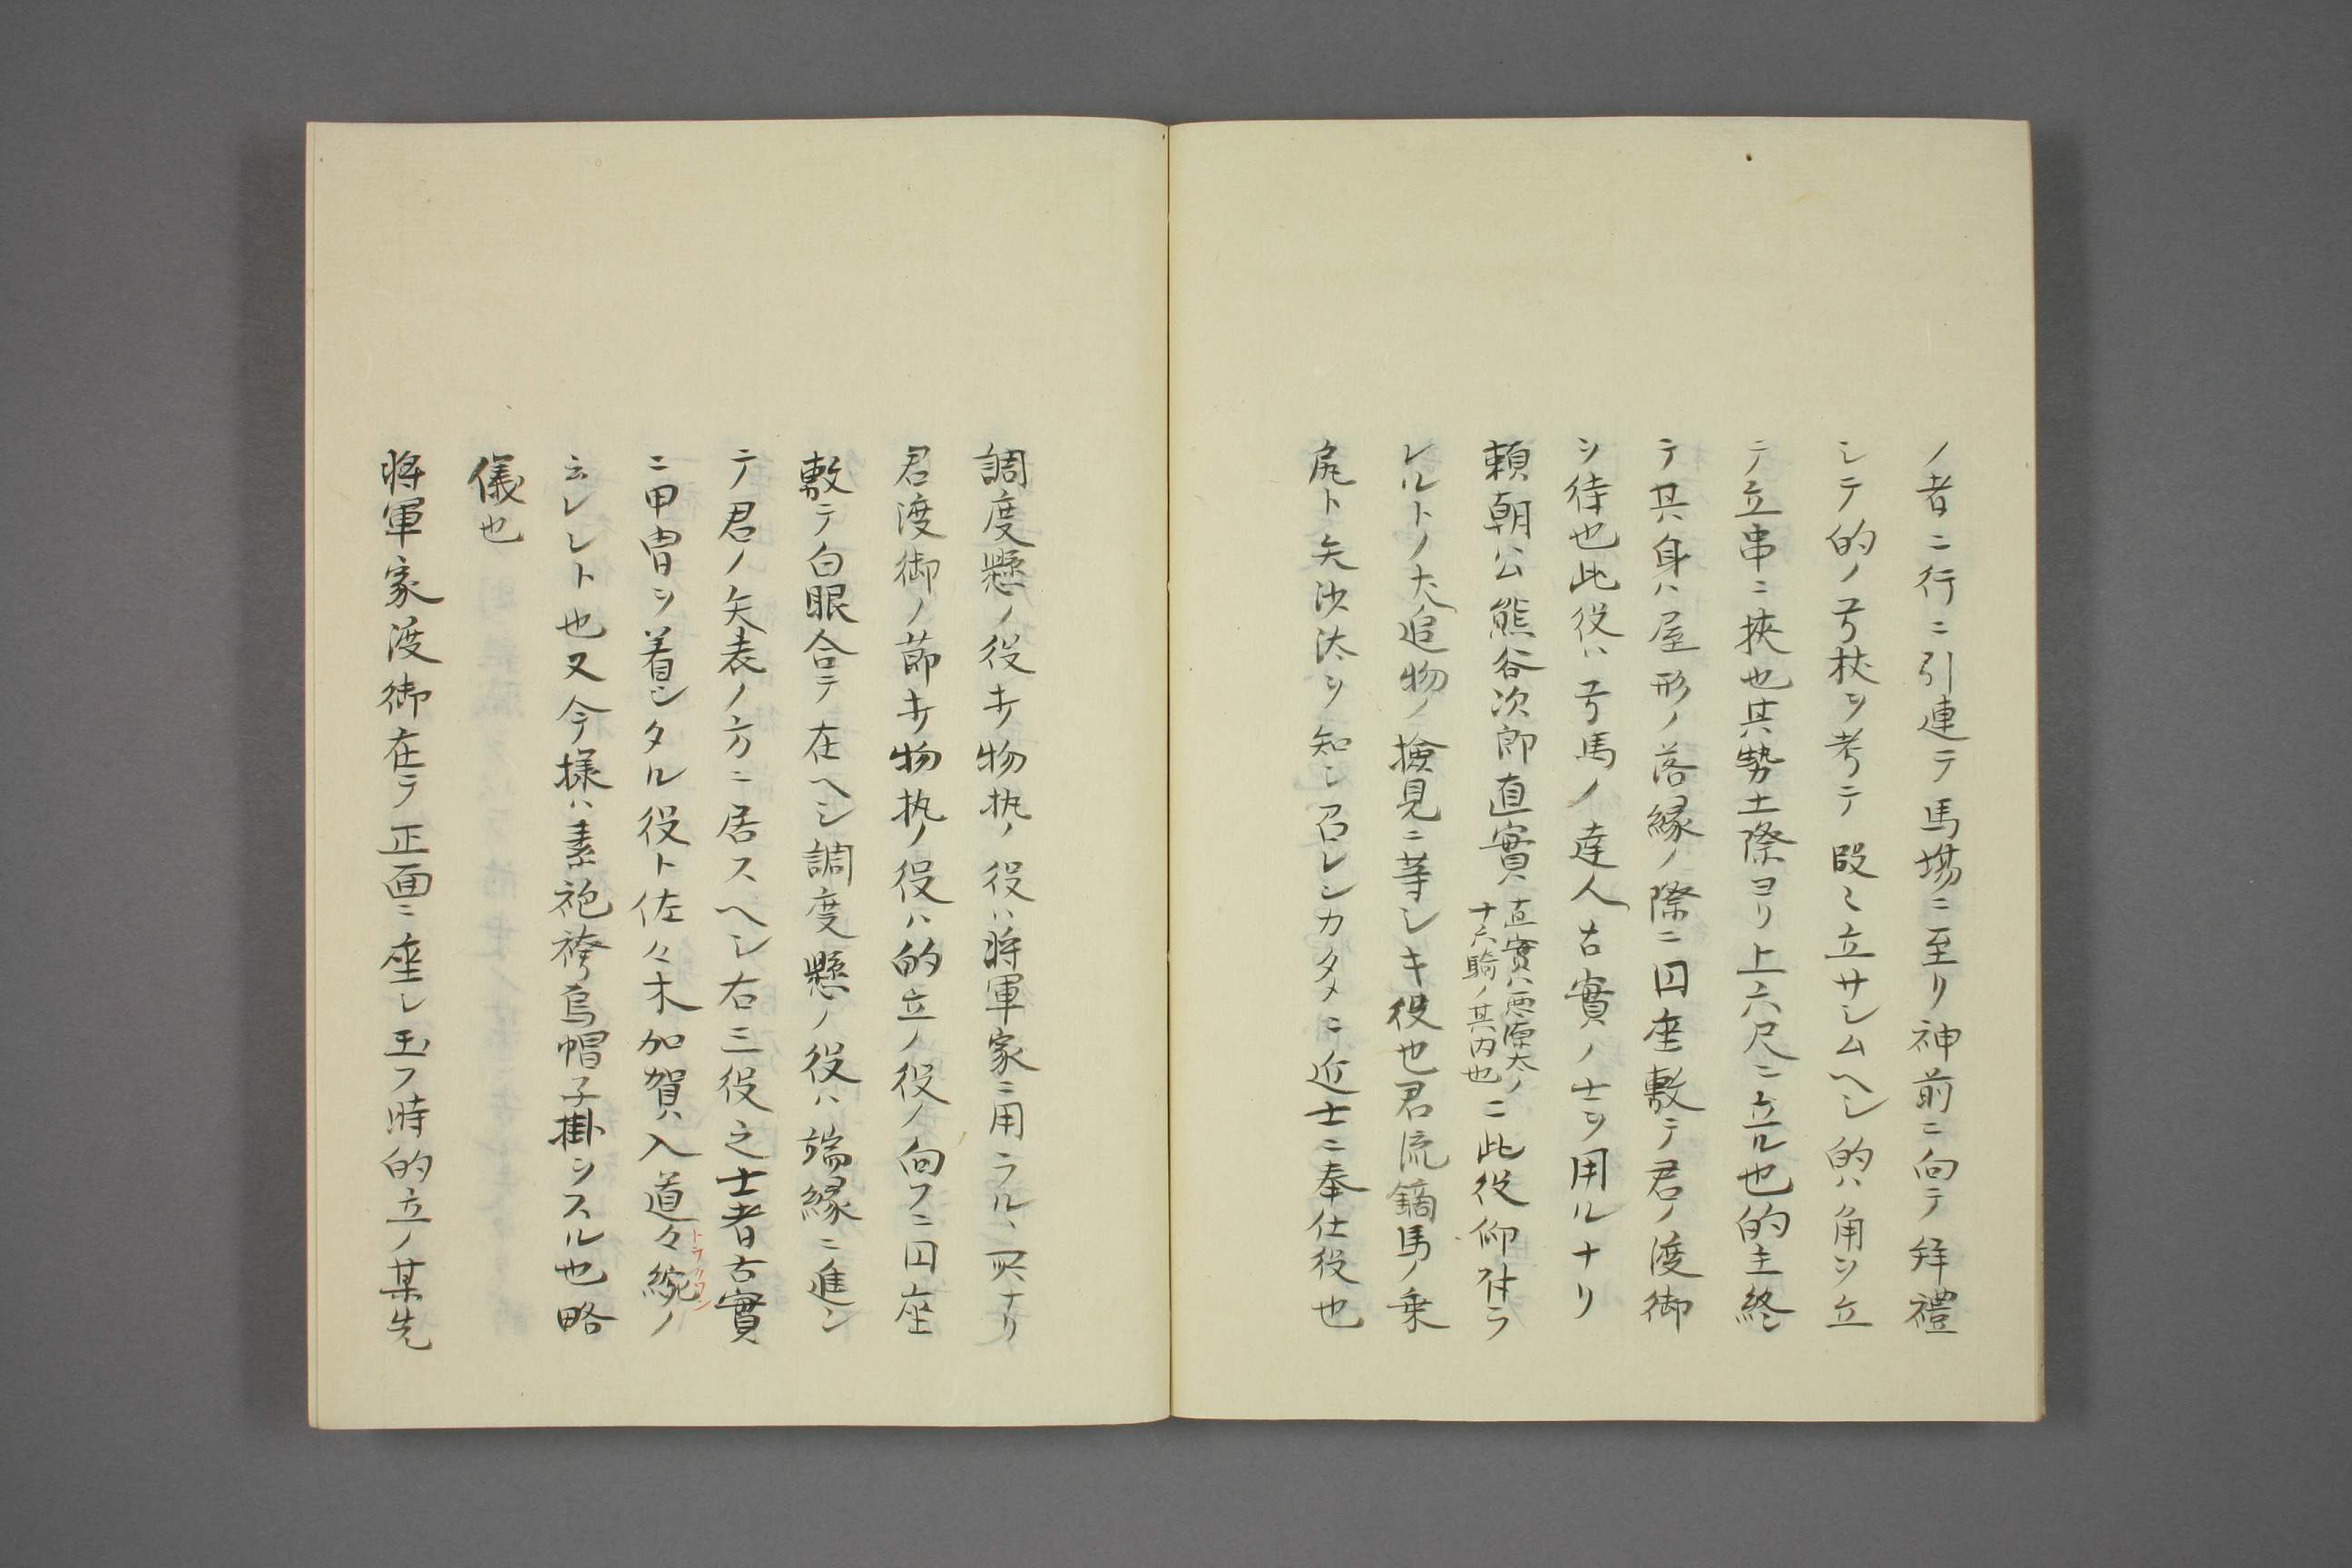 ノ者ニ行ニ引連テ馬場ニ至リ神前ニ向テ拜禮
シテ的ノ弓杖ヲ考テ段ミ立サシムヘシ的ハ角ヲ立
テ立串ニ挾也其勢土際ヨリ上六尺ニ立ル也的主終
テ其身ハ屋形ノ落縁ノ際ニ円座敷テ君ノ渡御
ヲ待也此役ハ弓馬ノ達人古實ノ士ヲ用ルナリ
頼朝公熊谷次郎直實ハ
直實ハ悪源太ノ
十六騎ノ其内也
ニ此役仰付ラ
レルトノ犬追物ノ撿見ニ等シキ役也君流鏑馬ノ乗
尻ト矢沙汰ヲ知シ召レンカタメニ近士ニ奉仕役也
調度懸ノ役キ物执ノ役ハ将軍家ニ用ラル、㕝ナリ
君渡御ノ節キ物执ノ役ハ的立ノ役ノ向フニ円座
敷テ白眼合テ在ヘシ調度懸ノ役ハ端縁ニ進ン
テ君ノ矢表ノ方ニ居スヘシ右三役之士者古實
ニ甲冑ヲ着シタル役ト佐々木加賀ハ入道々綩ノ
トウクワン
云レシト也又今様ハ素袍袴烏帽子掛ヲスル也略
儀也
将軍家渡御在テ正面ニ座シ玉フ時的立ノ某先